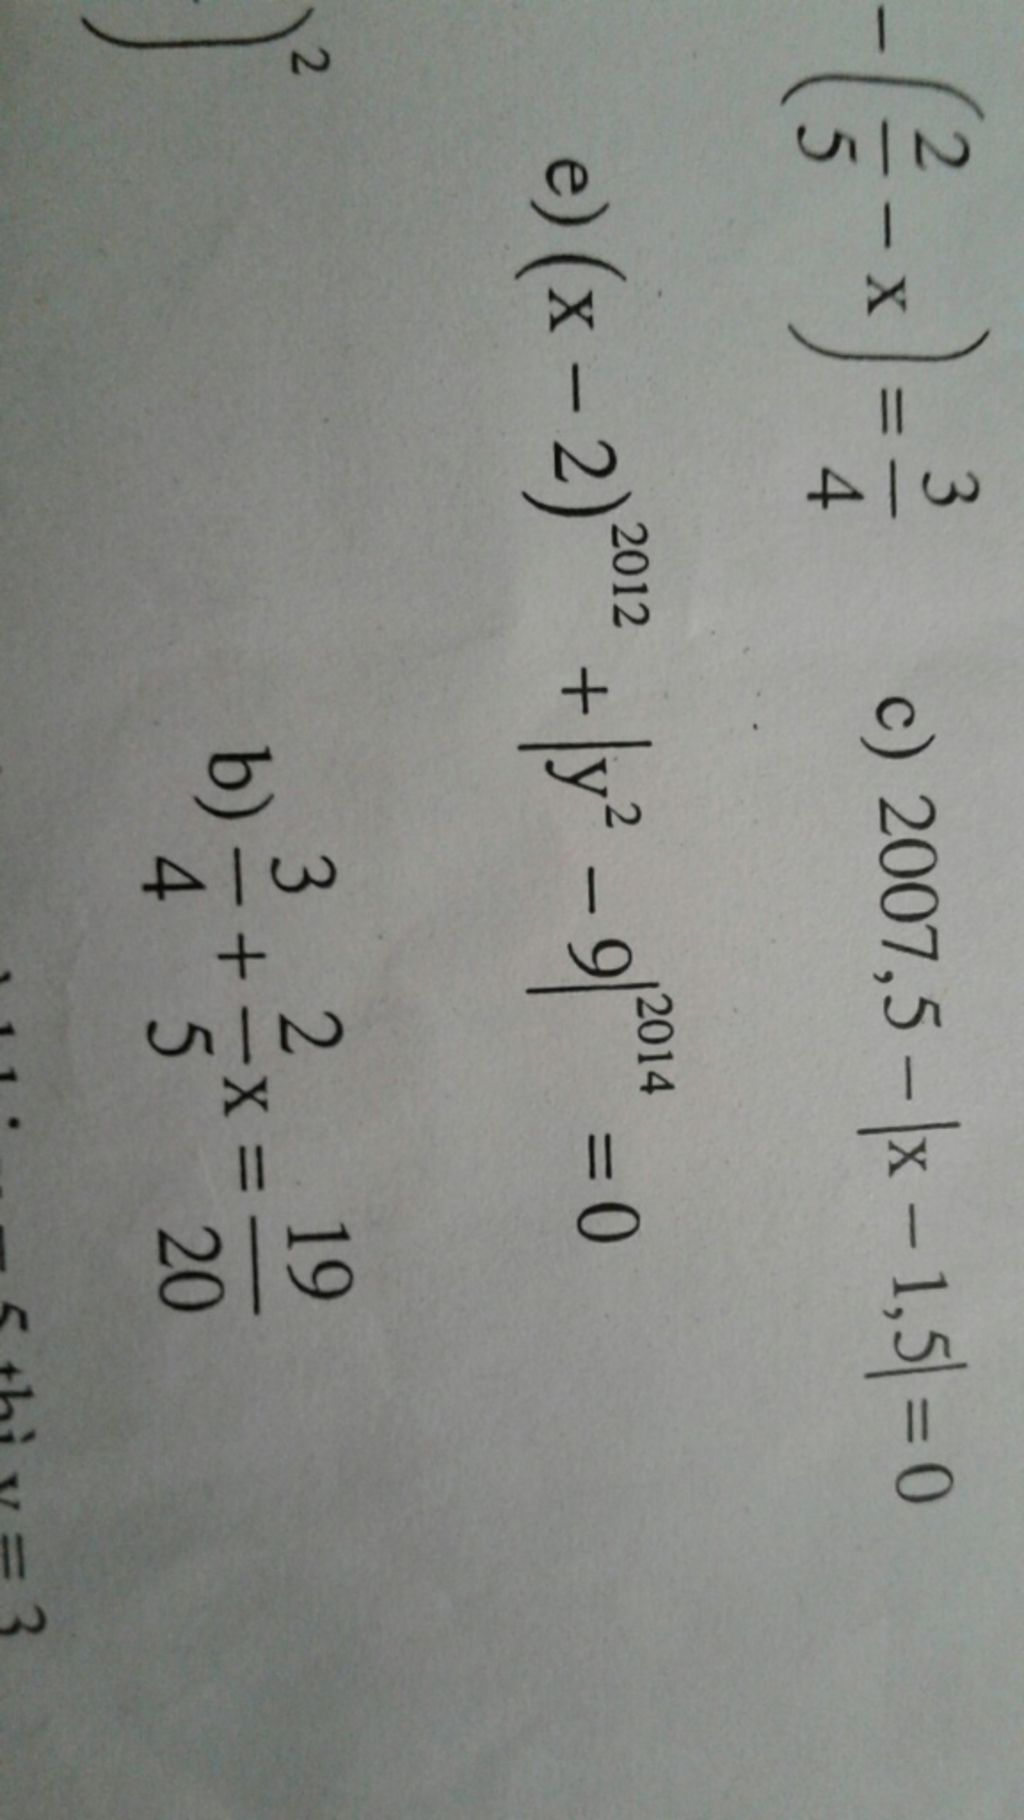 - (2/5 - x) = 3/4 c) 2007,5 - |x - 1,5| = 0
e) (x - 2)^2012 + |y² - 9|^2014 = 0
)²
b) 3/4 + 2/5 x = 19/20
5 thì y = 3